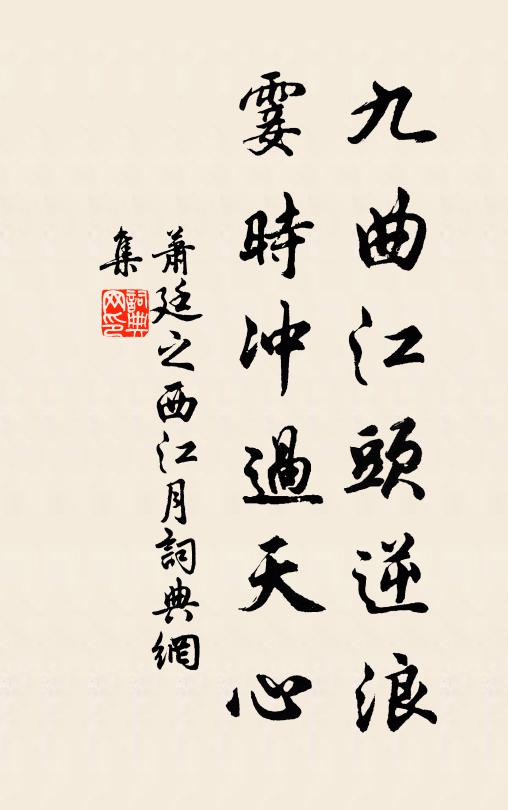 九曲江頭逆浪
霎時冲過天心
蕭廷之西江月詞典網
集
詞典
网印